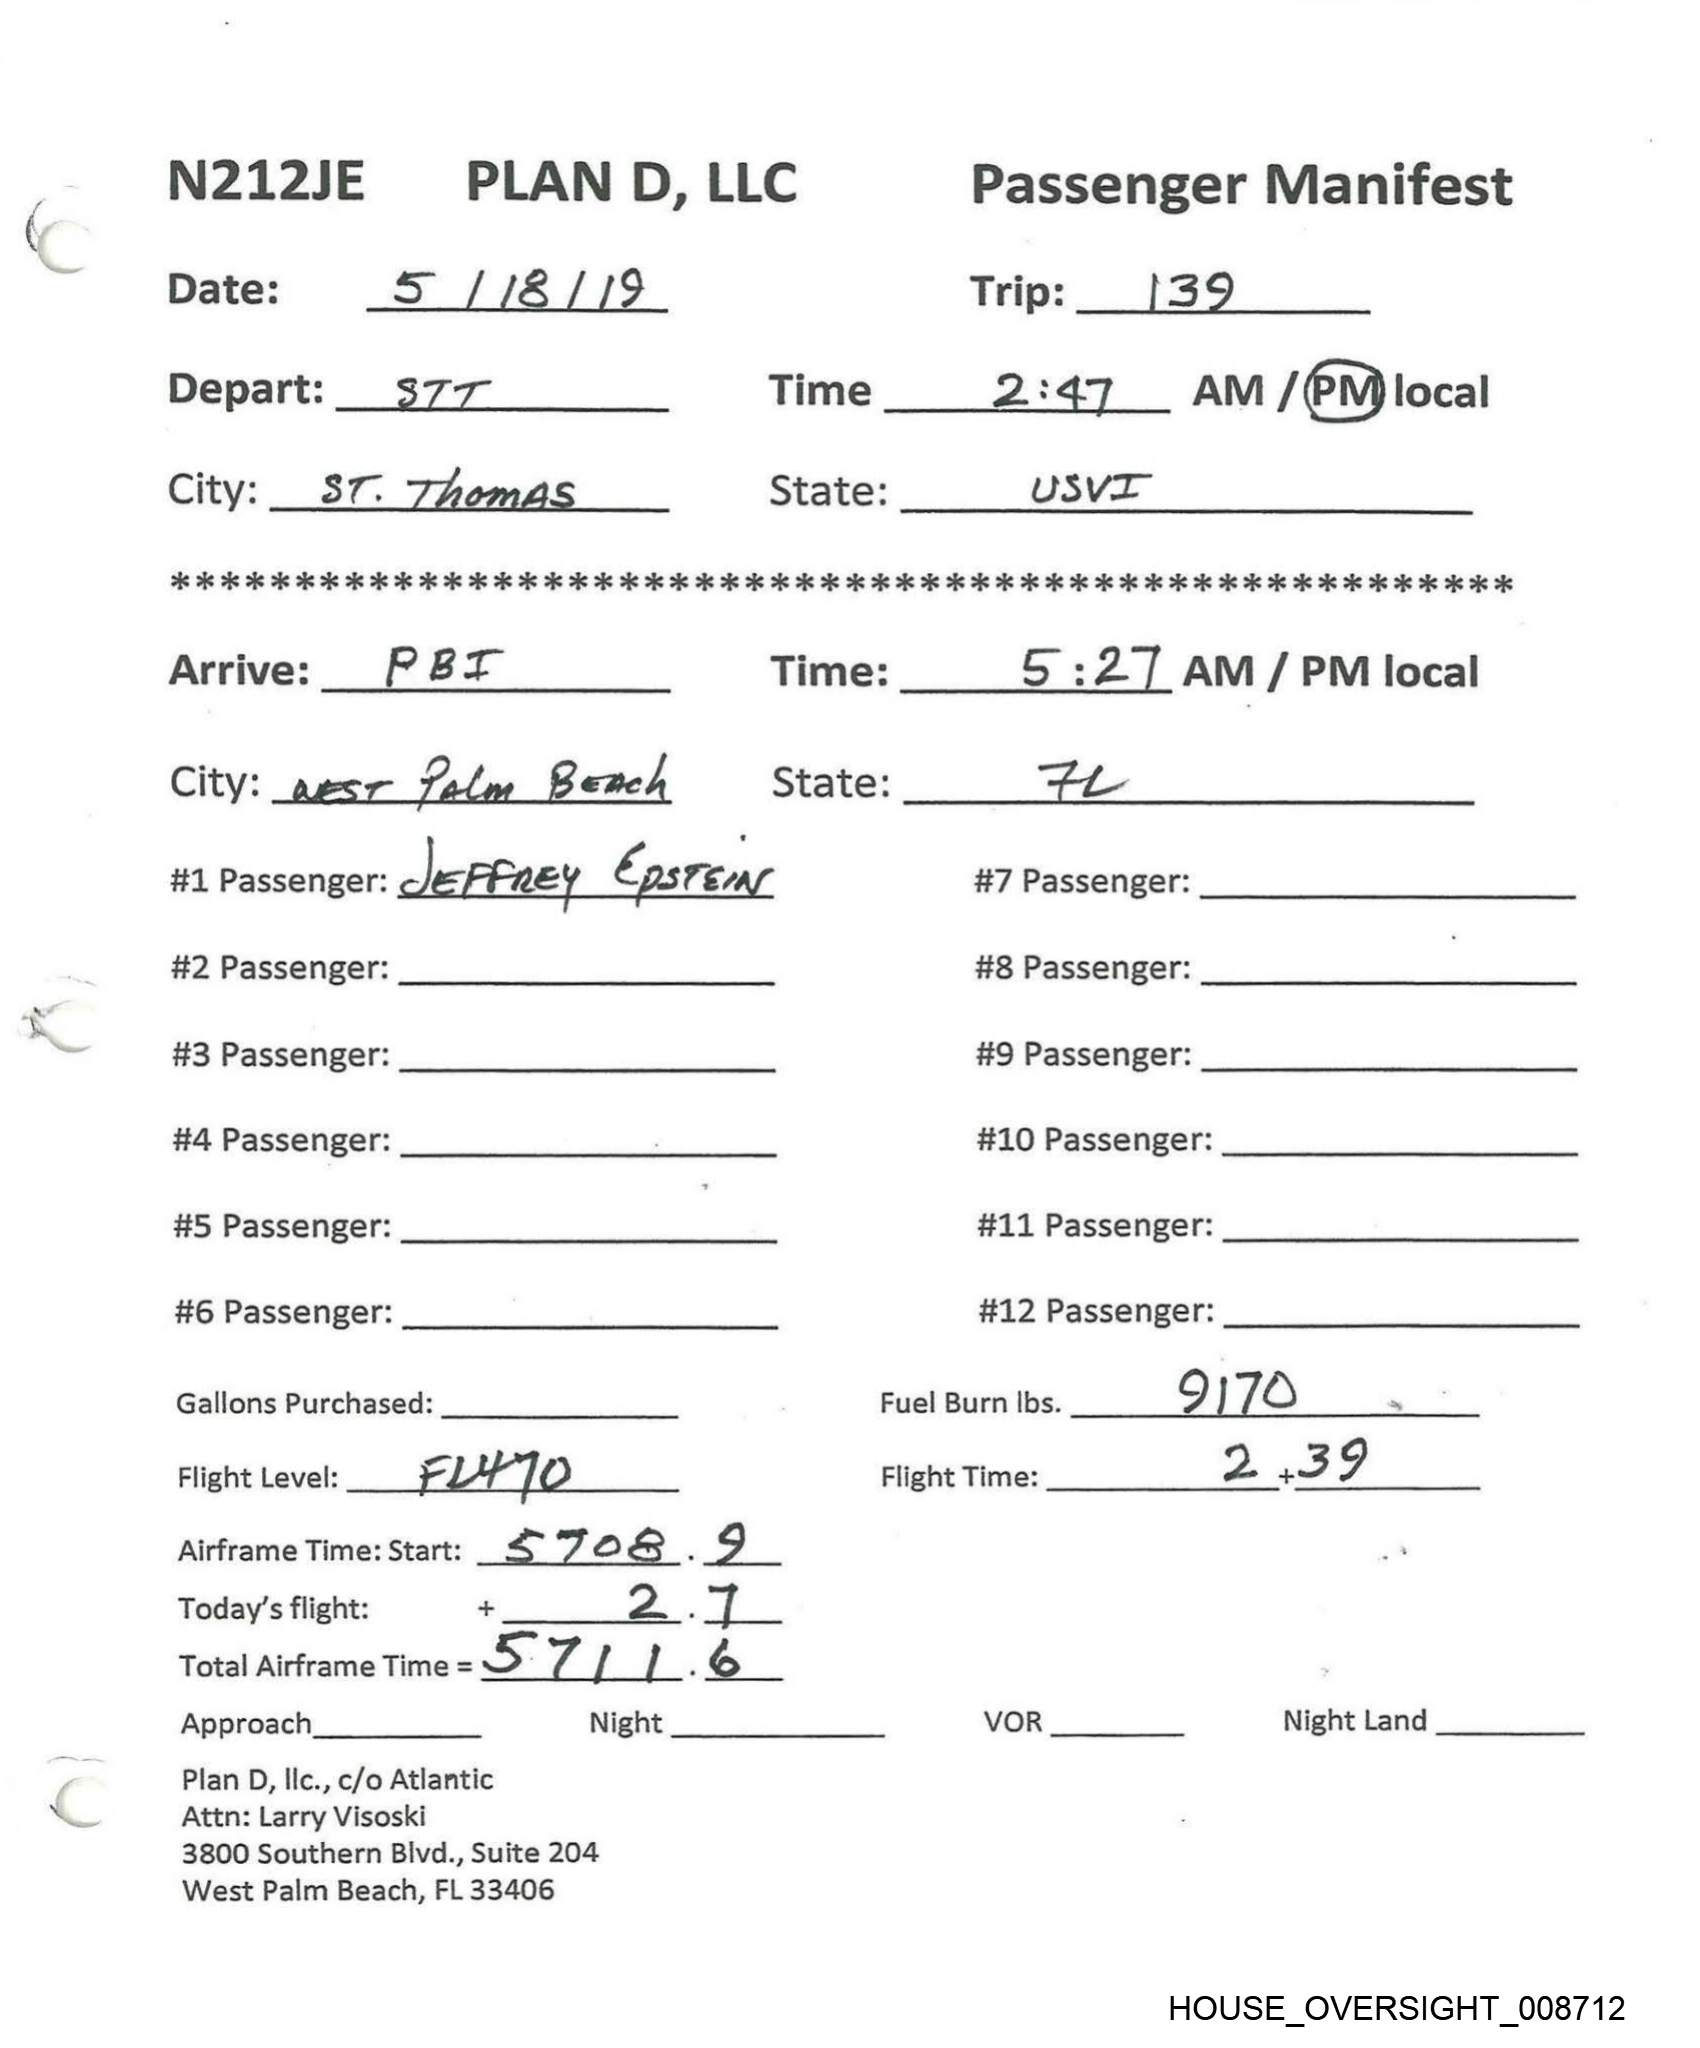 N212JE PLAN D, LLC Passenger Manifest
Date: 5 / 18 / 19 Trip: 139
Depart: STT Time 2:47 AM / PM local
City: ST. ThomAS State: USVI
******************************************************
Arrive: PBI Time: 5:27 AM / PM local
City: WEST PAlm BEAch State: FL
#1 Passenger: JEFFREY EPSTEIN #7 Passenger:
#2 Passenger: #8 Passenger:
#3 Passenger: #9 Passenger:
#4 Passenger: #10 Passenger:
#5 Passenger: #11 Passenger:
#6 Passenger: #12 Passenger:
Gallons Purchased: Fuel Burn lbs. 9170
Flight Level: FL470 Flight Time: 2 + 39
Airframe Time: Start: 5708.9
Today's flight: + 2.7
Total Airframe Time = 5711.6
Approach Night VOR Night Land
Plan D, llc., c/o Atlantic
Attn: Larry Visoski
3800 Southern Blvd., Suite 204
West Palm Beach, FL 33406
HOUSE_OVERSIGHT_008712